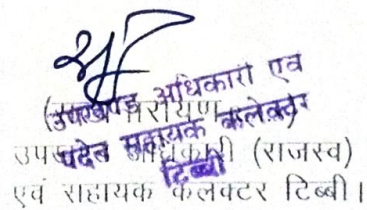 उपखण्ड अधिकारी एवं
पदेन सहायक कलेक्टर
टिब्बी
( नारायण )
उपखण्ड अधिकारी (राजस्व)
एवं सहायक कलक्टर टिब्बी।